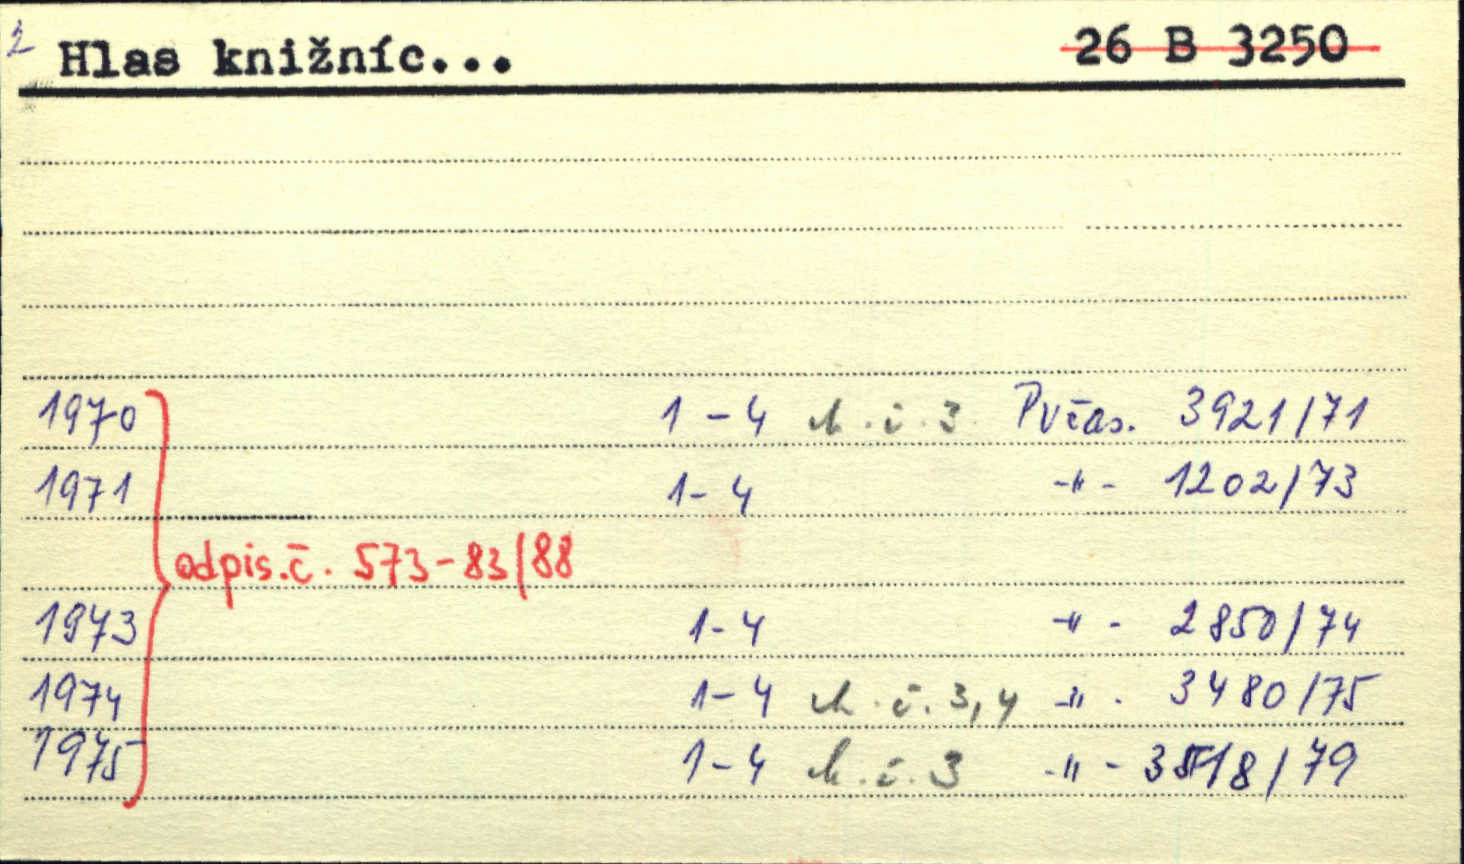 2 Hlas knižníc... 26 B 3250
1970 1-4 ch. č. 3 Pvčas. 3921/71
1971 1-4 -"- 1202/73
odpis.č. 573-83/88
1973 1-4 -"- 2850/74
1974 1-4 ch. č. 3,4 -"- 3480/75
1975 1-4 ch. č. 3 -"- 3518/79